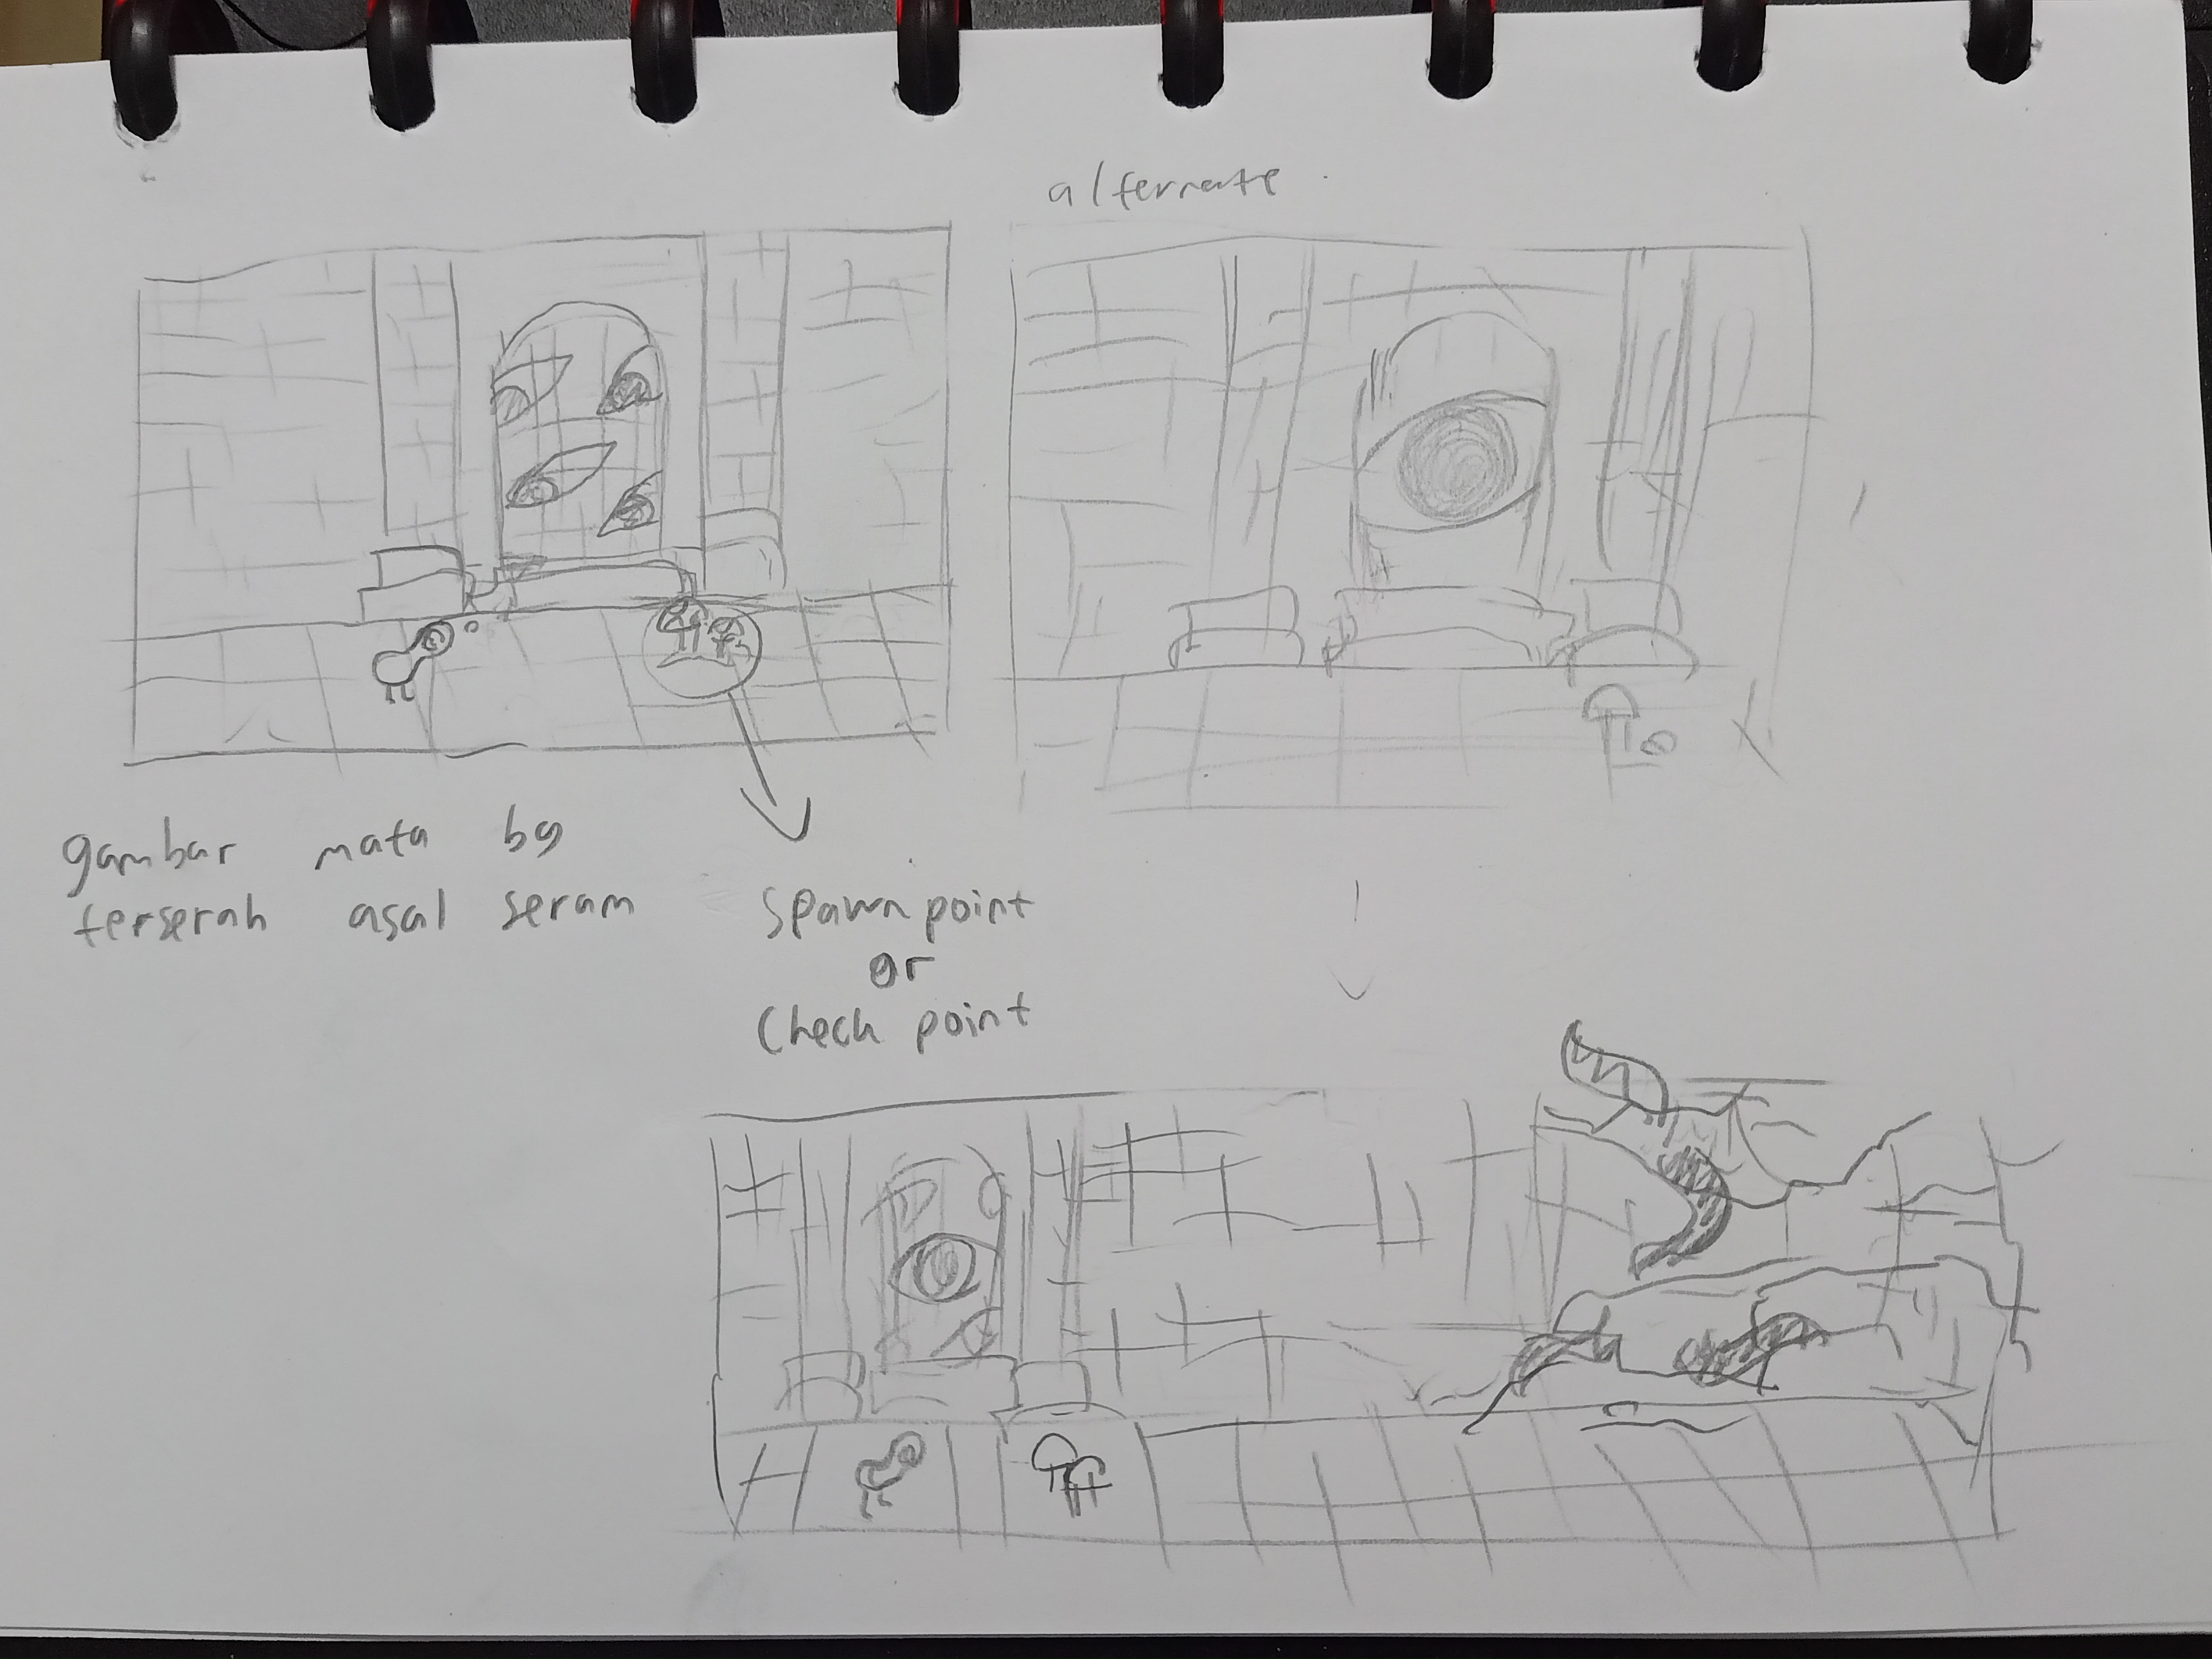 alternate
gambar mata bg
terserah asal seram
spawn point
or
Check point